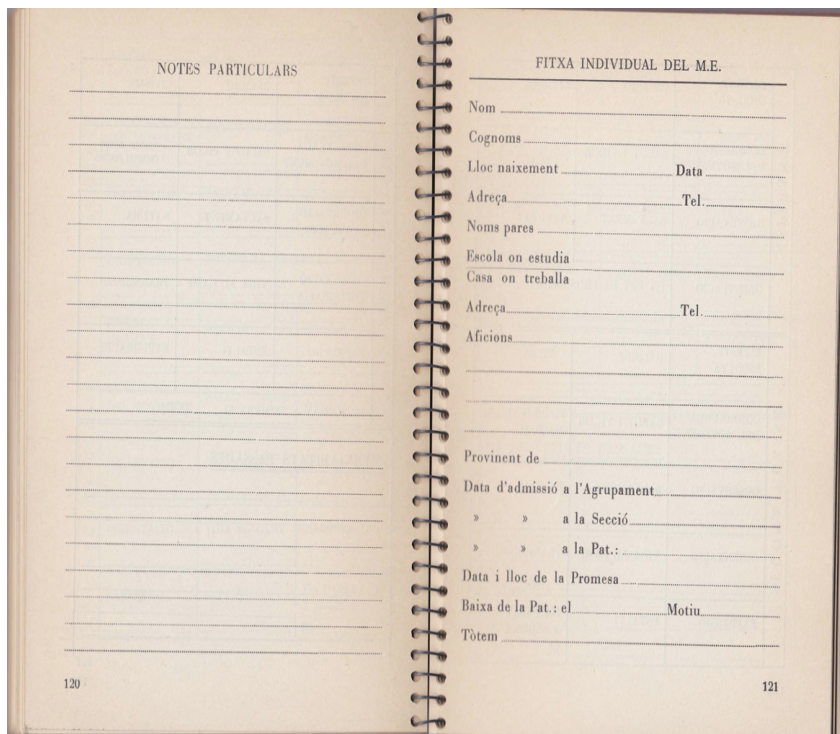 NOTES PARTICULARS
120
FITXA INDIVIDUAL DEL M.E.
Nom
Cognoms
Lloc naixement Data
Adreça Tel.
Noms pares
Escola on estudia
Casa on treballa
Adreça Tel.
Aficions
Provinent de
Data d'admissió a l'Agrupament
» » a la Secció
» » a la Pat.:
Data i lloc de la Promesa
Baixa de la Pat.: el Motiu
Tòtem
121